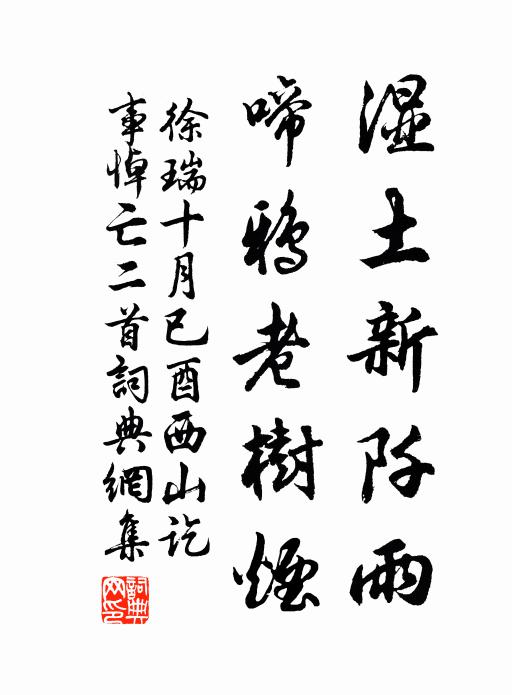 湿土新阡雨
啼鴉老樹煙
徐瑞十月已酉西山訖
事悼亡二首詞典網集
詞典網印